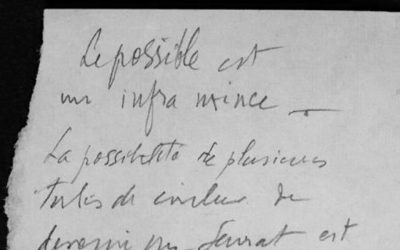 Le possible est
un infra mince _
La possibilité de plusieurs
tubes de couleur de
devenir un Seurat est